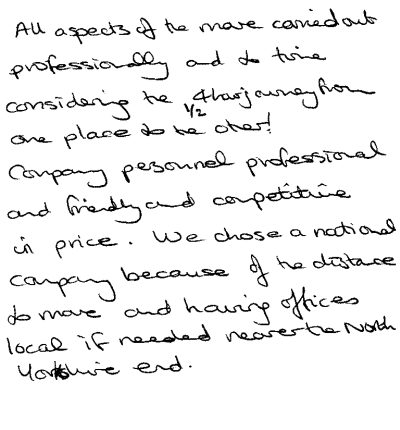 All aspects of the move carried out
professionally and to time
considering the 4 1/2 hour journey from
one place to the other!
Company personnel professional
and friendly and competitive
in price. We chose a national
company because of the distance
to move and having offices
local if needed nearer the North
Yorkshire end.